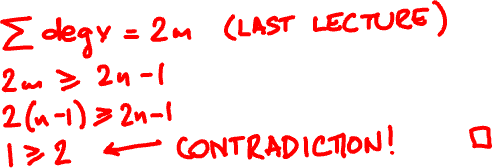 ∑ deg v = 2m (LAST LECTURE)
2m ⩾ 2n-1
2(n-1) ⩾ 2n-1
1 ⩾ 2 ← CONTRADICTION! □